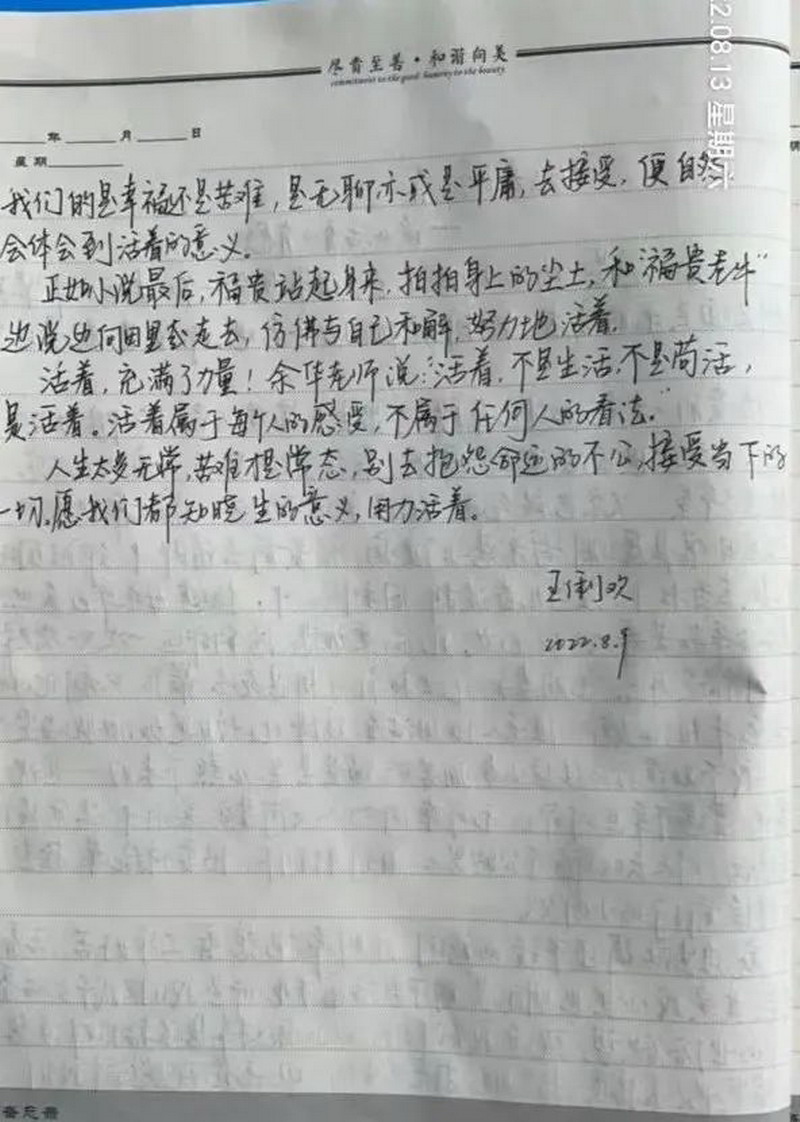 尽责至善·和谐向美
commitment to the good harmony to the beauty
2.08.13 星期六
年 月 日
星期
我们的是幸福还是苦难，是无聊亦或是平庸，去接受，便自然
会体会到活着的意义。
正如小说最后，福贵站起身来，拍拍身上的尘土，和“福贵老牛”
边说边向田里走去，仿佛与自己和解，努力地活着。
活着，充满了力量！余华老师说：“活着，不是生活，不是苟活，
是活着。活着属于每个人的感受，不属于任何人的看法。”
人生太多无常，苦难才是常态，别去抱怨命运的不公，接受当下的
一切。愿我们都知晓生的意义，用力活着。
2022.8.9
备忘册